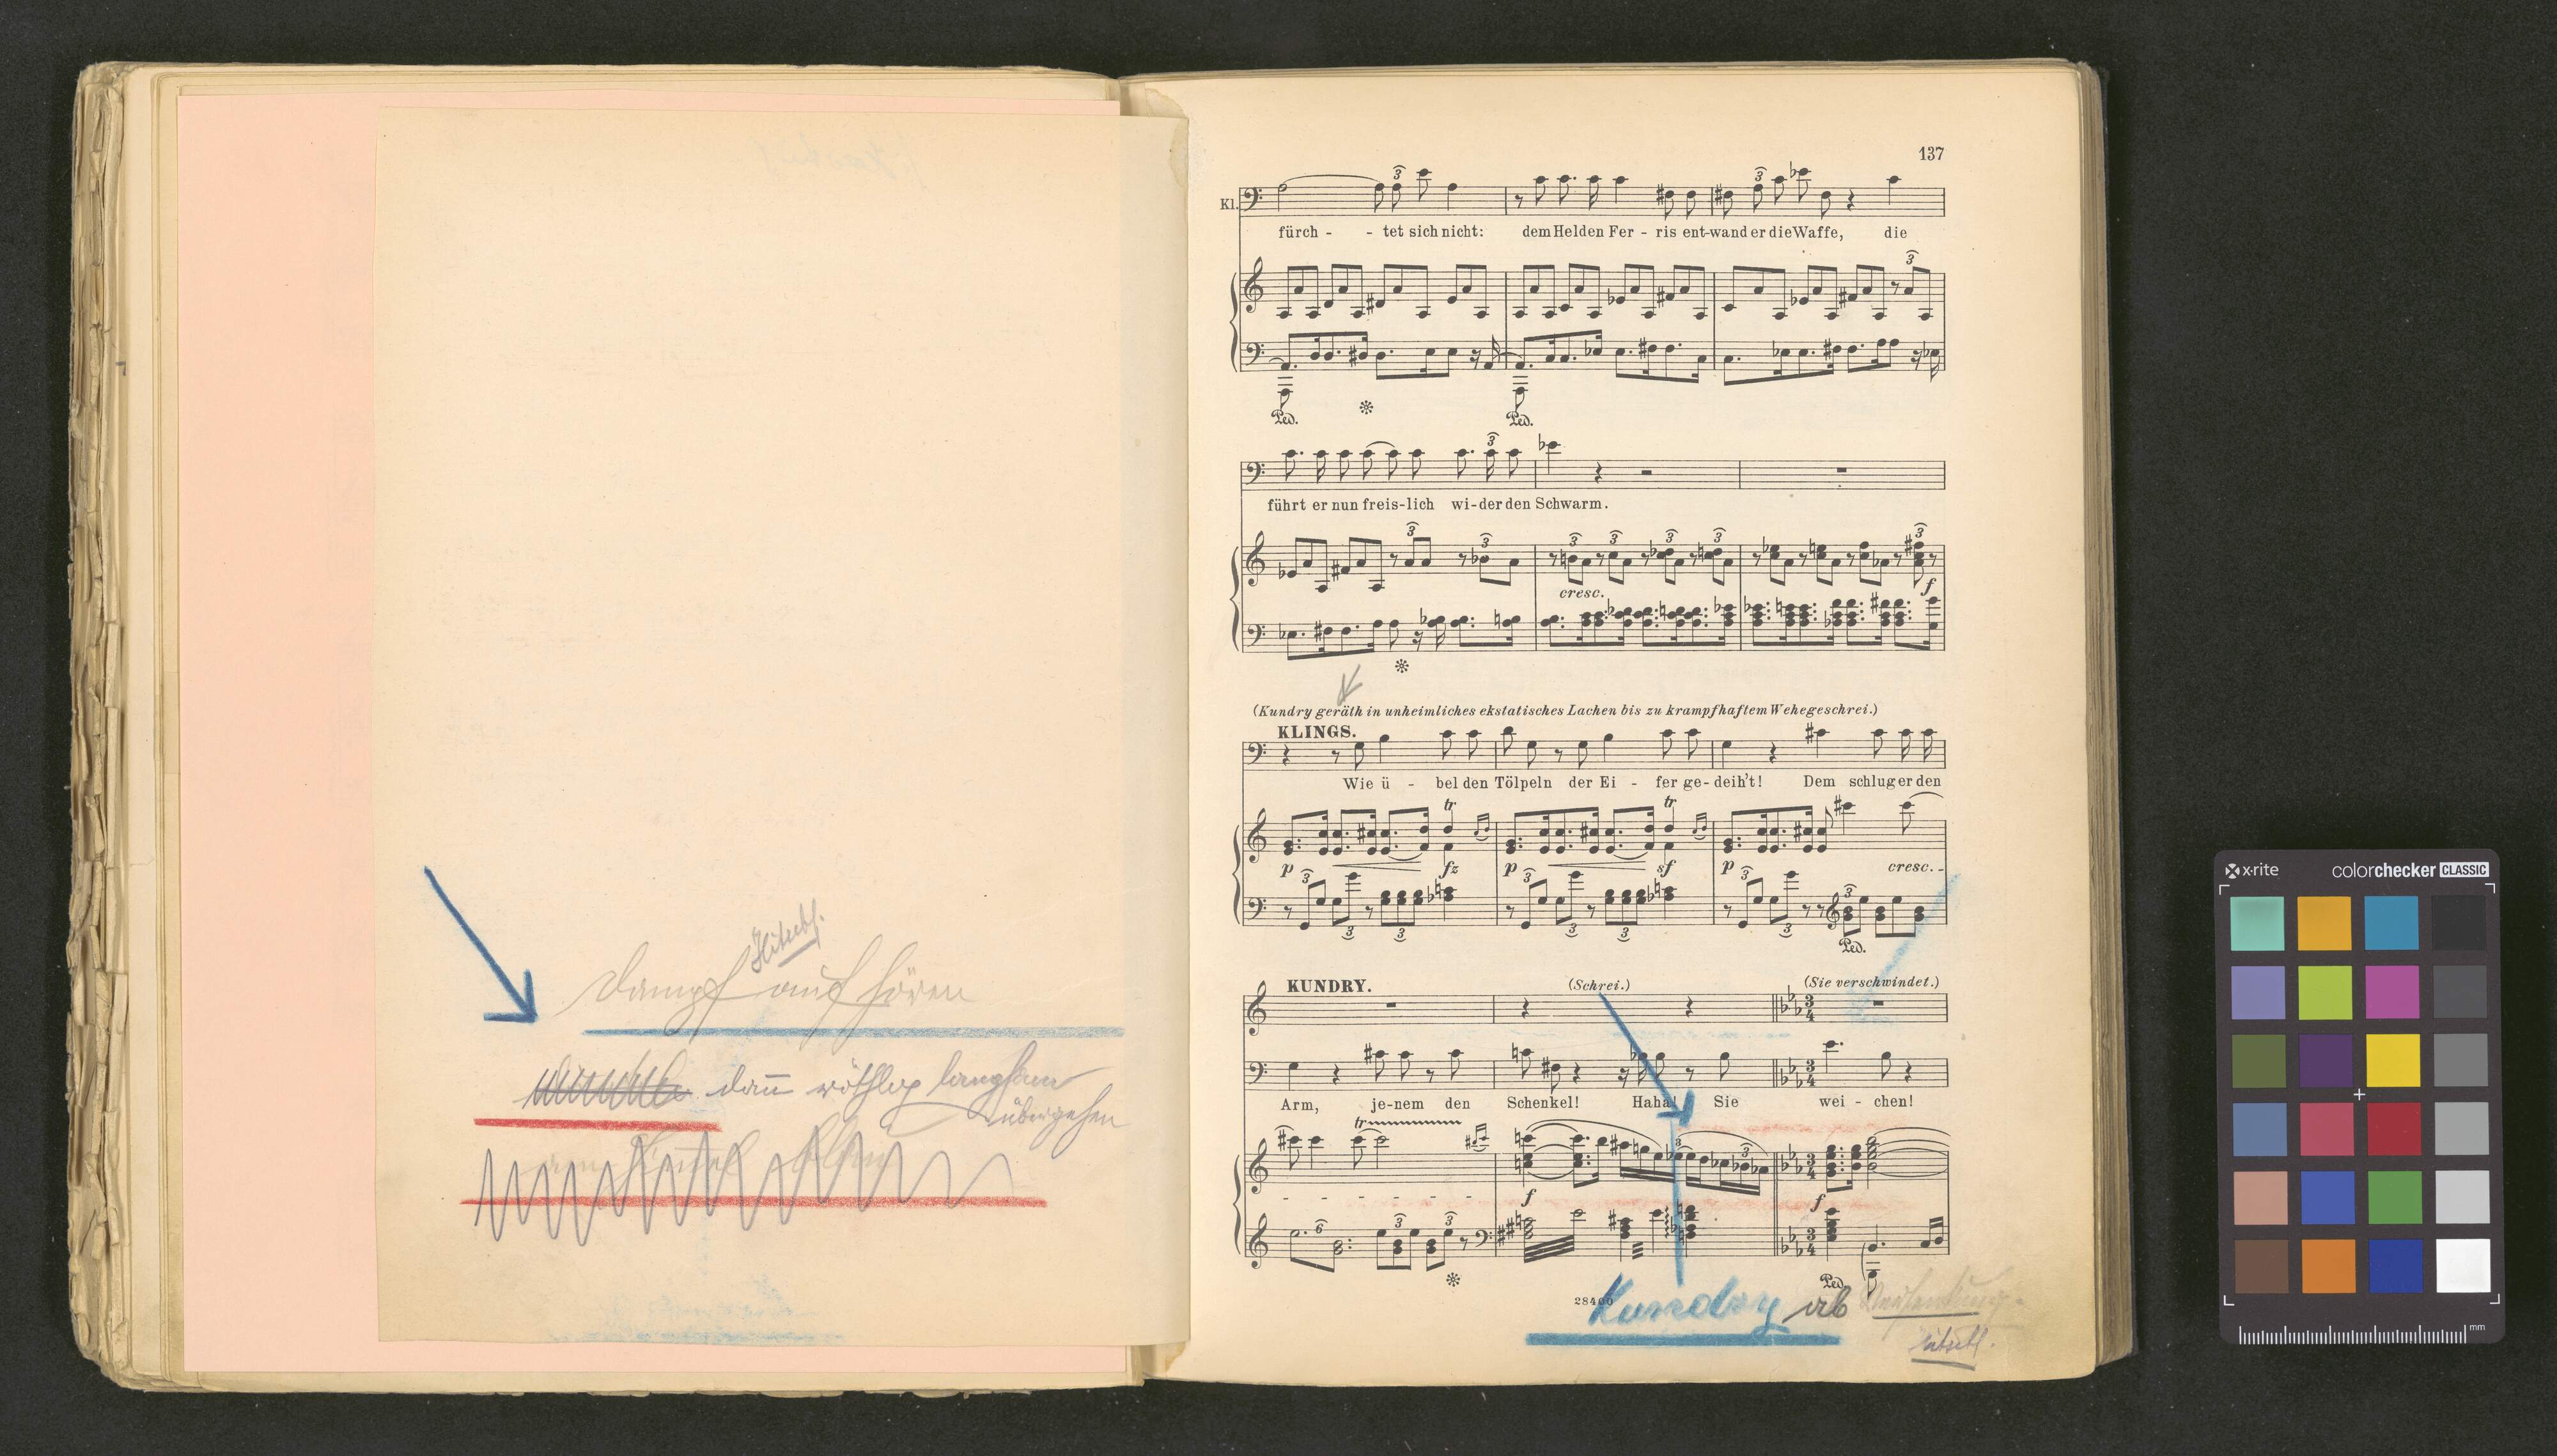 Dampf auf hören
dann röthlich langsam
übergehen
137
Kl.
3 3
fürch - - tet sich nicht: dem Helden Fer - ris ent-wand er die Waffe, die
3
Ped. Ped.
3
führt er nun freis-lich wi-der den Schwarm.
3 3 3 3 3 3 3
cresc. f
(Kundry geräth in unheimliches ekstatisches Lachen bis zu krampfhaftem Wehegeschrei.)
KLINGS.
Wie ü - bel den Tölpeln der Ei - fer ge-deih't! Dem schlug er den
tr tr
p fz p sf p cresc. -
3 3 3 3
3 3 3 3 3
Ped.
KUNDRY. (Schrei.) (Sie verschwindet.)
3 4
Arm, je-nem den Schenkel! Haha! Sie wei - chen!
tr 3 3
f f
6 3 3
Ped.
28400
Kundry ab
x·rite colorchecker CLASSIC
mm